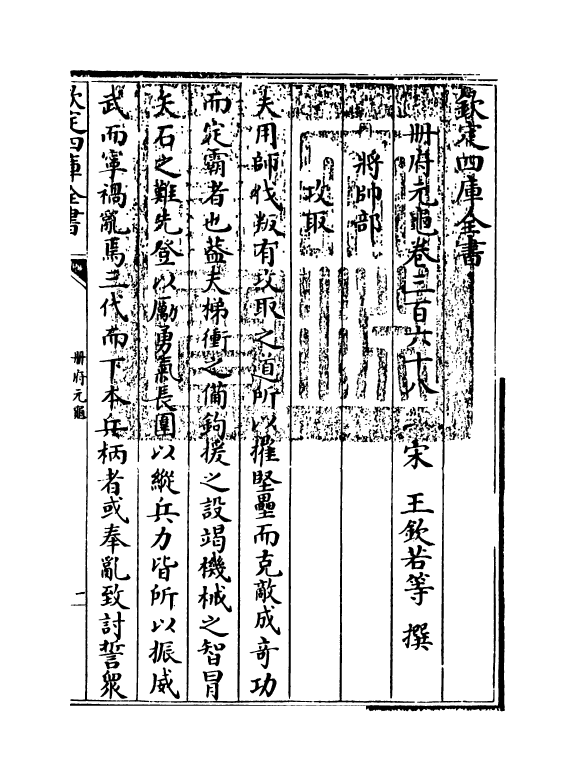 欽定四庫全書
册府元龜卷三百六十八
宋 王欽若等 撰
將帥部
攻取
夫用師伐叛有攻取之道所以摧堅壘而克敵成竒功
而定霸者也葢夫梯衝之備鉤援之設竭機械之智冒
矢石之難先登以勵勇氣長圍以縱兵力皆所以振威
武而寜禍亂焉三代而下本兵柄者或奉亂致討誓衆
欽定四庫全書
册府元龜